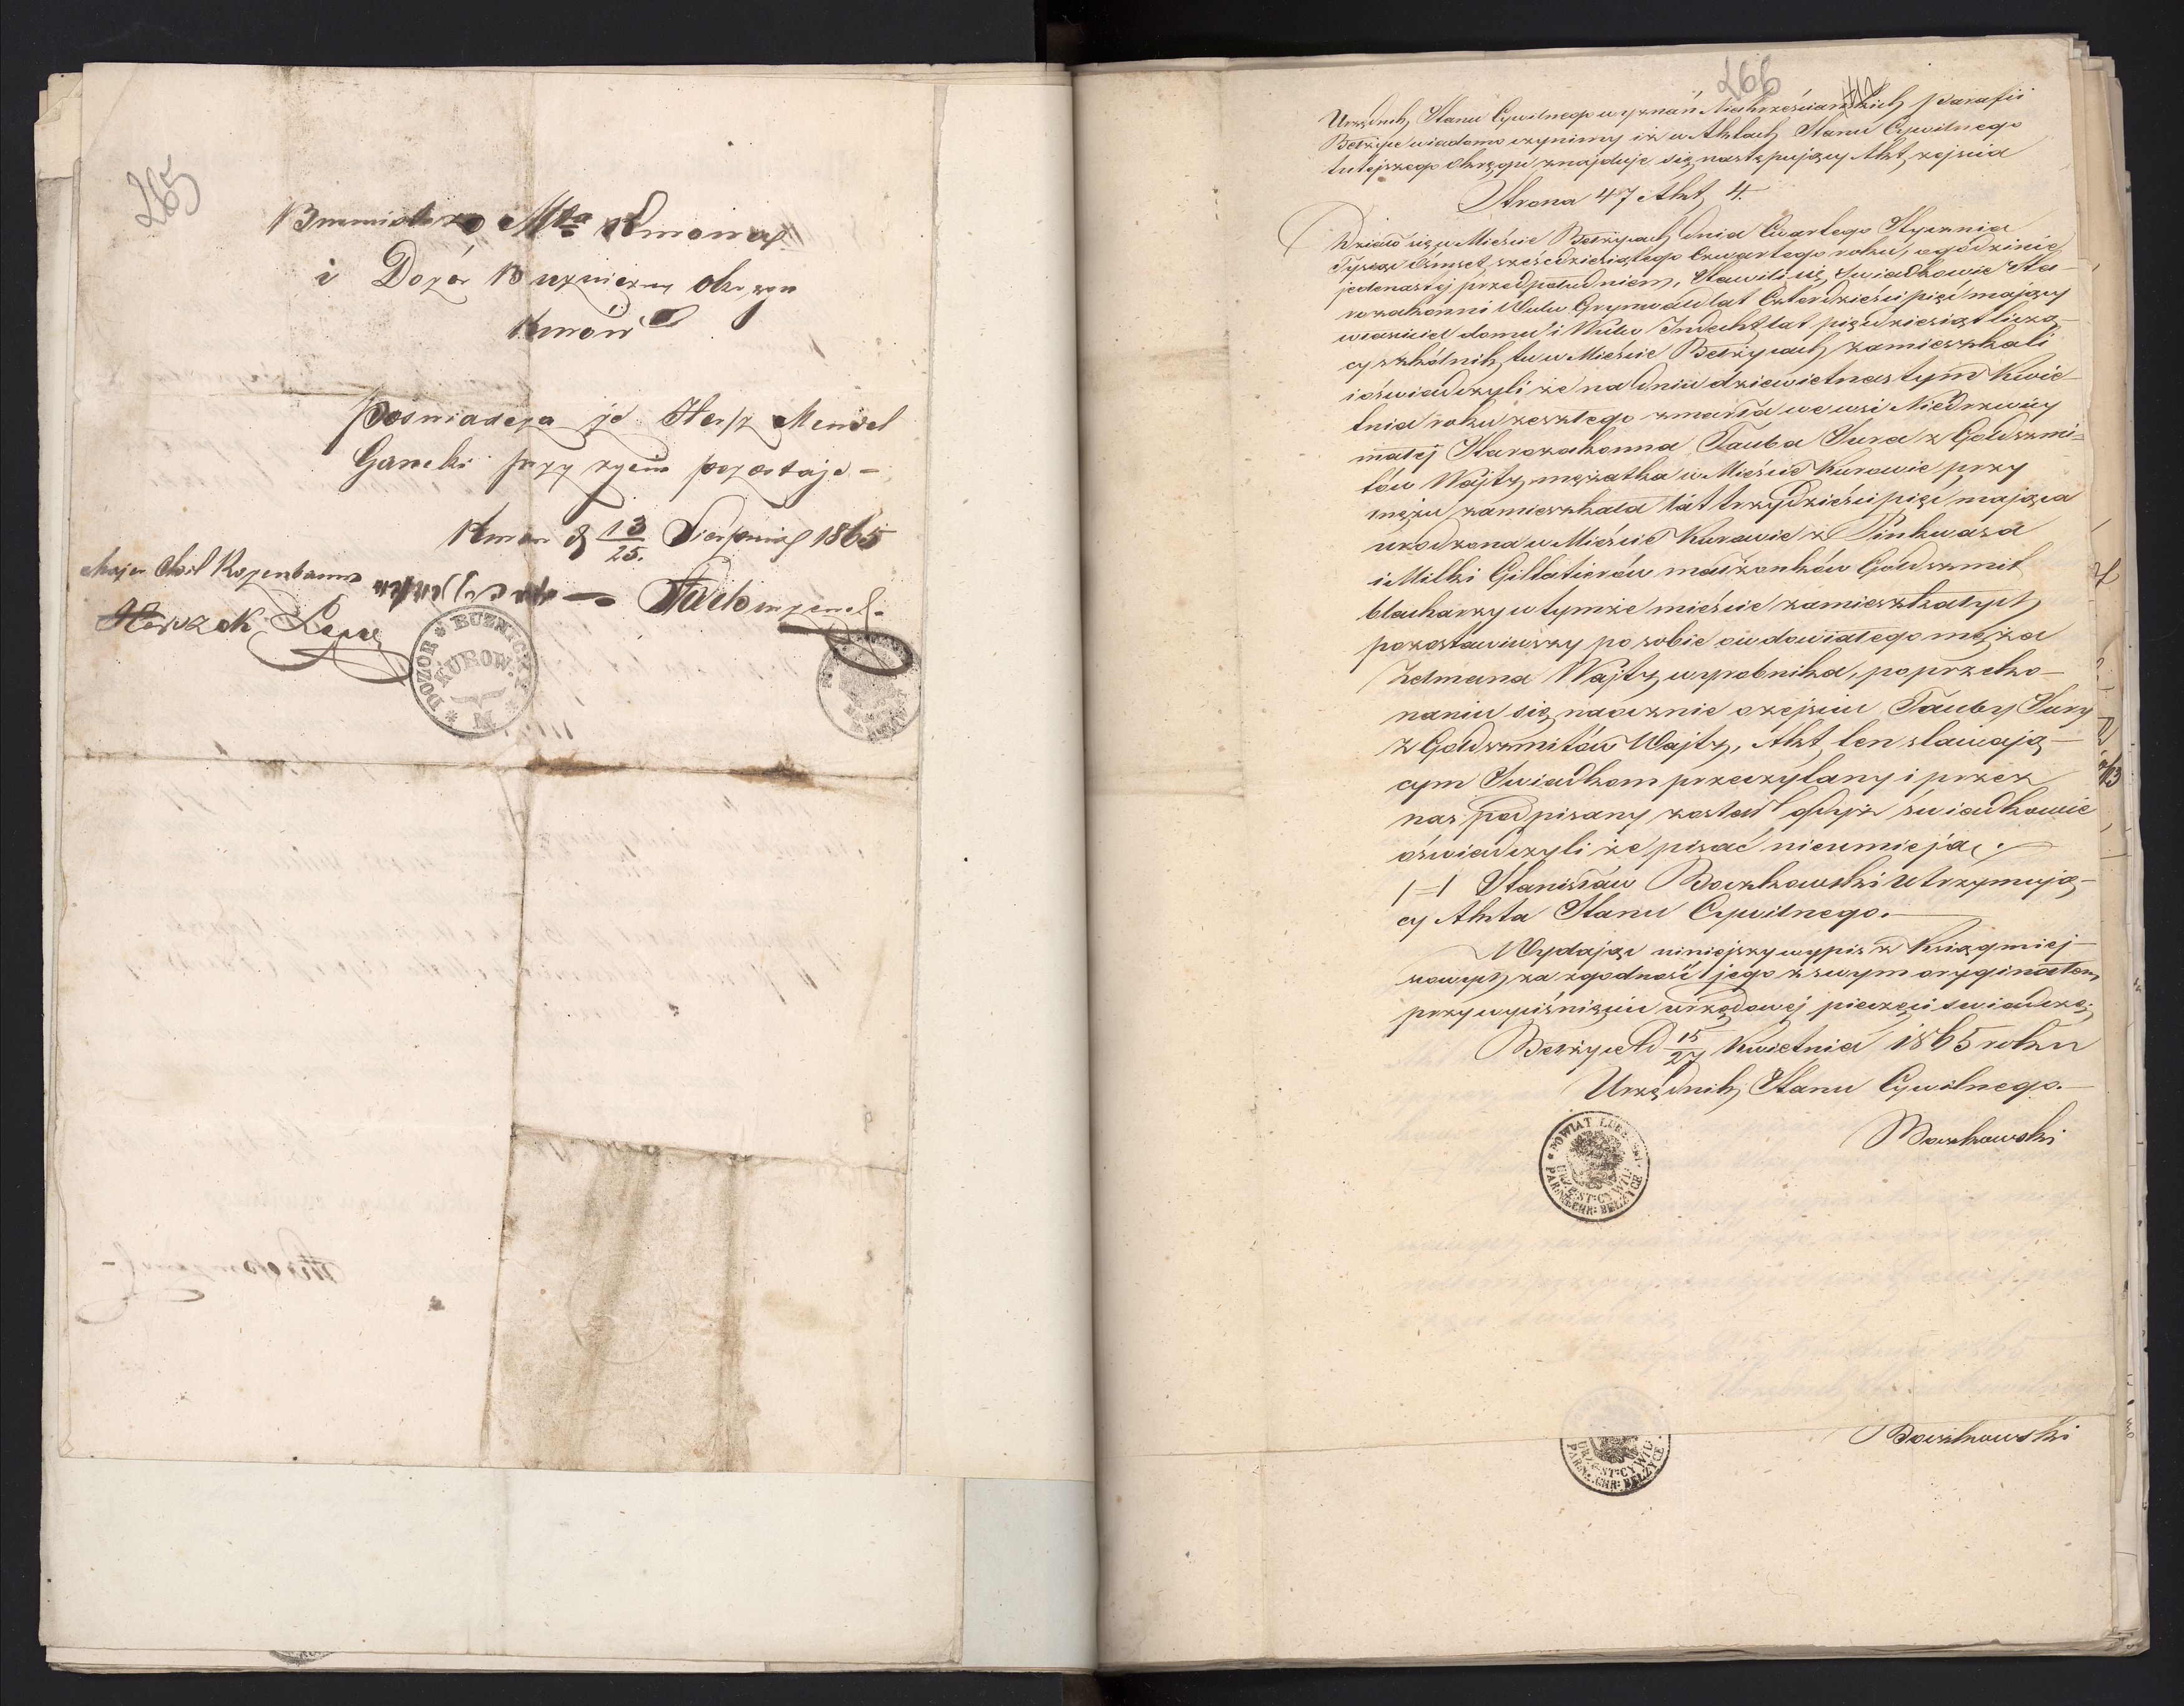 265
Burmistrz Mta Kurowa
i Dozór Bużniczny okręgu
Kurów
Poświadcza że Herszk Mendel
Garncki przy życiu pozostaje –
Kurów d 13/25 Sierpnia 1865
Chil Rozenbaum
DOZOR BUZNICZNY
KUROW.
M
266
Urzędnik Stanu Cywilnego wyznań Niechrześciańskich Parafii
Bełżyce wiadomo czynimy iż w Aktach Stanu Cywilnego
tutejszego Okręgu znajduje się następujący Akt zejścia
Strona 47 Akt 4.
Działo się w Mieście Bełżycach dnia Czwartego Stycznia
Tysiąc Ośmset sześćdziesiątego Czwartego roku, o godzinie
jedenastej przed południem, Stawili się Swiadkowie Sta-
rozakonni Wulw Grynwald lat Czterdzieści pięć mający
właściciel domu i Wulw lat pięćdziesiąt liczą-
cy szkólnik, tu w Mieście Bełżycach zamieszkali
i oświadczyli że na dniu dziewietnastym Kwie-
tnia roku zeszłego zmarła we wsi Niedrzwicy
małej Starozakonna Tauba Sura z Goldszmi-
tów Wajtz, mężatka w Mieście Kurowie przy
mężu zamieszkała lat trzydzieści pięć mająca
urodzona w Mieście Kurowie z Pinkwasa
i Milki Giltatierów małżonków Goldszmit
blacharzy w tymże mieście zamieszkałych
pozostawiwszy po sobie owdowiałego męża
Zelmana Wajtz, wyrobnika, po przeko-
naniu się naocznie o zejściu Tauby Sury
z Goldszmitów Wajtz, Akt ten stawają-
cym Swiadkom przeczytany i przez
nas podpisany został gdyż świadkowie
oświadczyli że pisać nieumieją.
/=/ Stanisław Boczkowski Utrzymują-
cy Akta Stanu Cywilnego.
Wydając niniejszy wypis z Ksiąg miej-
scowych za zgodność jego z swym oryginałem
przy wyciśnięciu urzędowej pieczęci świadczę
Bełżyce d 15/27 Kwietnia 1865 roku
Urzędnik Stanu Cywilnego.
Boczkowski
POWIAT LUBELSKI
URZ: ST: CYWIL:
PAR: N: CHR: BEŁZYCE
Boczkowski
URZ: ST: CYWIL:
PAR: N: CHR: BEŁZYCE